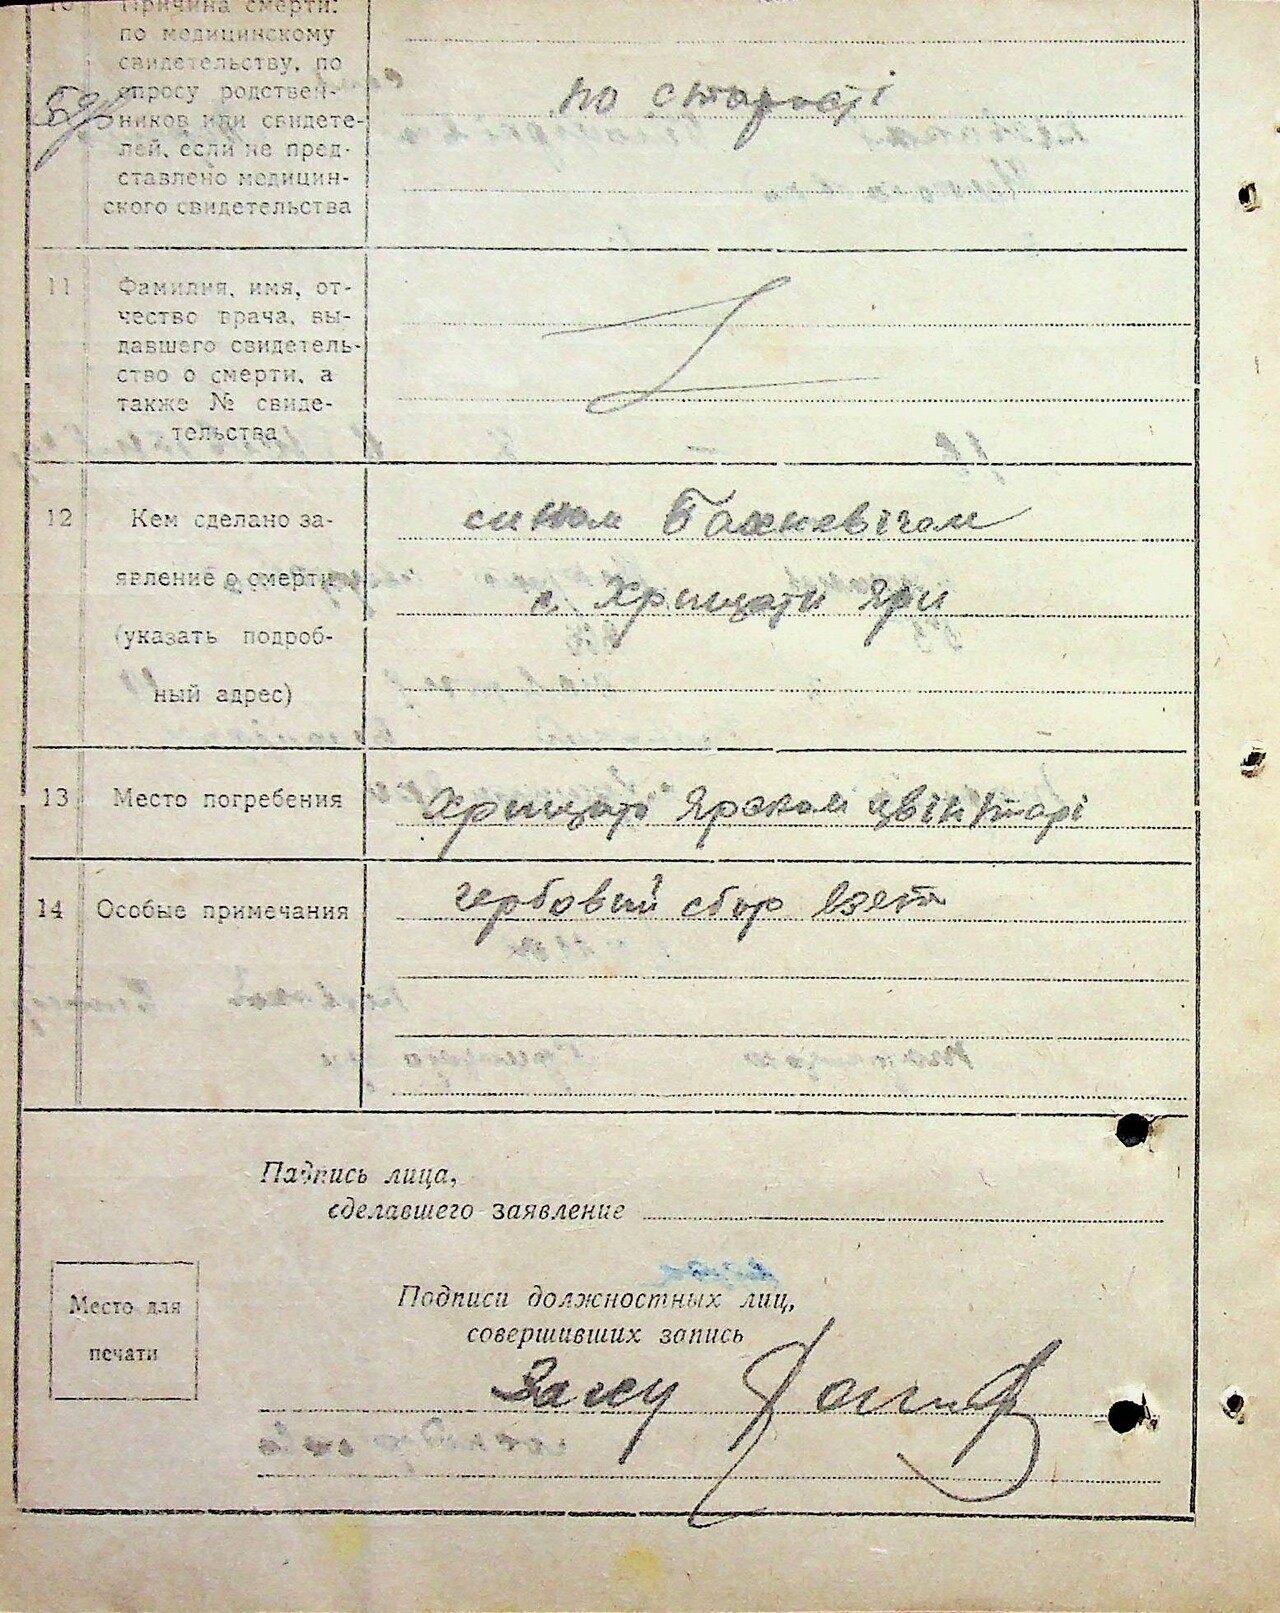 10 Причина смерти:
по медицинскому
свидетельству, по
опросу родствен-
ников или свидете-
лей, если не пред-
ставлено медицин-
ского свидетельства
по старості
11 Фамилия, имя, от-
чество врача, вы-
давшего свидетель-
ство о смерти, а
также № свиде-
тельства
12 Кем сделано за-
явление о смерти
(указать подроб-
ный адрес)
сином
с Хрищаті Яри
13 Место погребения
Хрищато Яркам цвінтарі
14 Особые примечания
гербовий сбор взят
Падпись лица,
сделавшего заявление
Место для
печати
Подписи должностных лиц,
совершивших запись